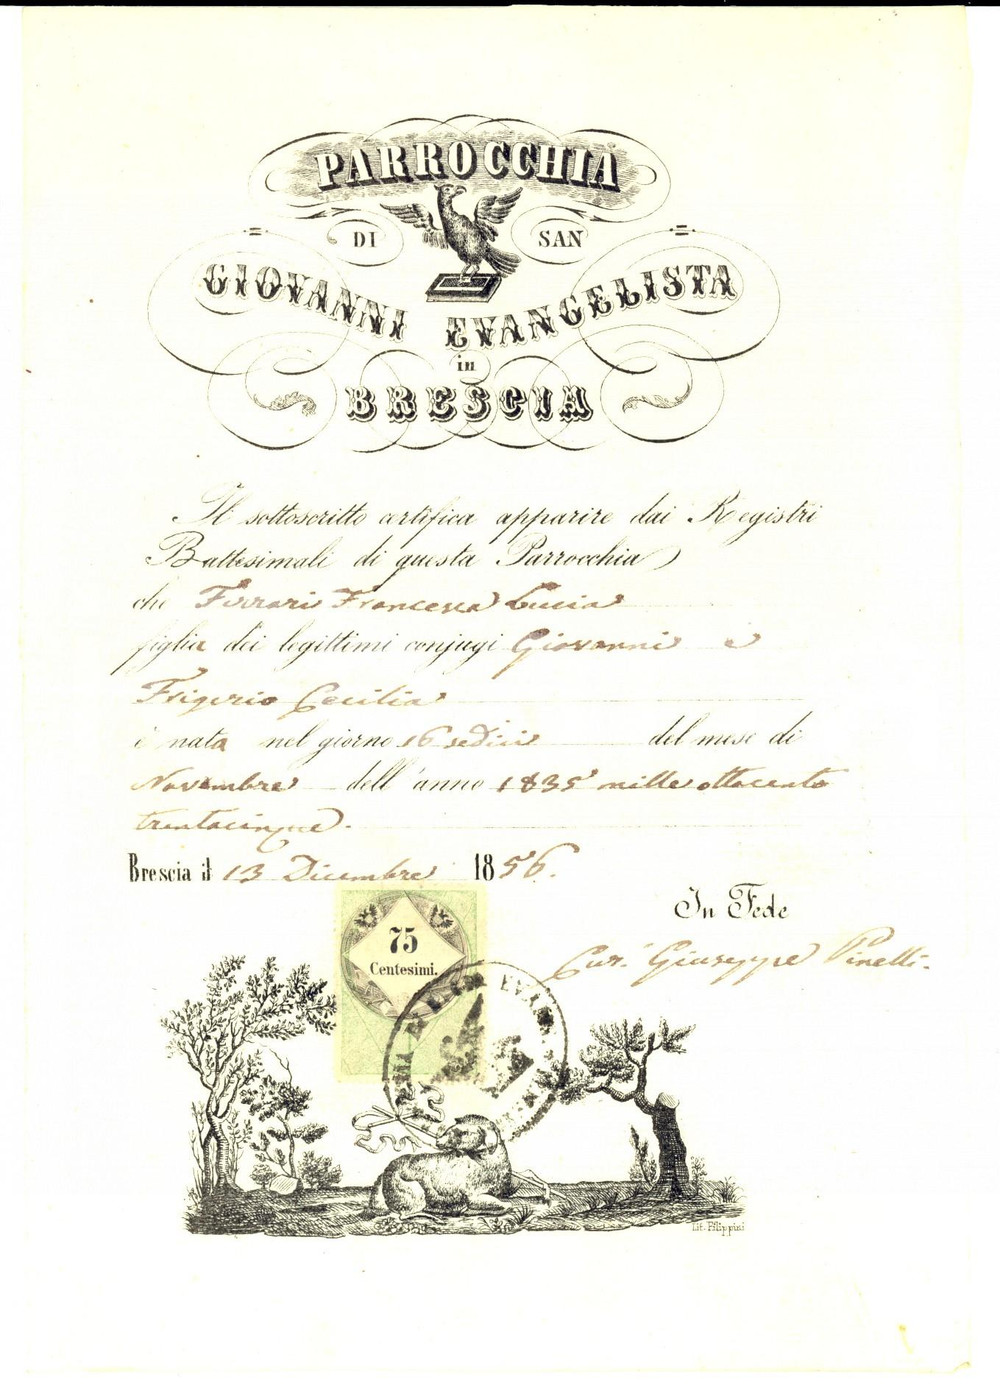 PARROCCHIA
DI SAN
GIOVANNI EVANGELISTA
in
BRESCIA
Il sottoscritto certifica apparire dai Registri
Battesimali di questa Parrocchia
che Ferrari Francesca Lucia
figlia dei legittimi conjugi Giovanni e
Frigerio Cecilia
è nata nel giorno 16 sedici del mese di
Novembre dell'anno 1835 mille ottocento
trentacinque.
Brescia il 13 Dicembre 1856.
In Fede
Cur.' Giuseppe Pinelli.
75
Centesimi.
Lit. Filippini